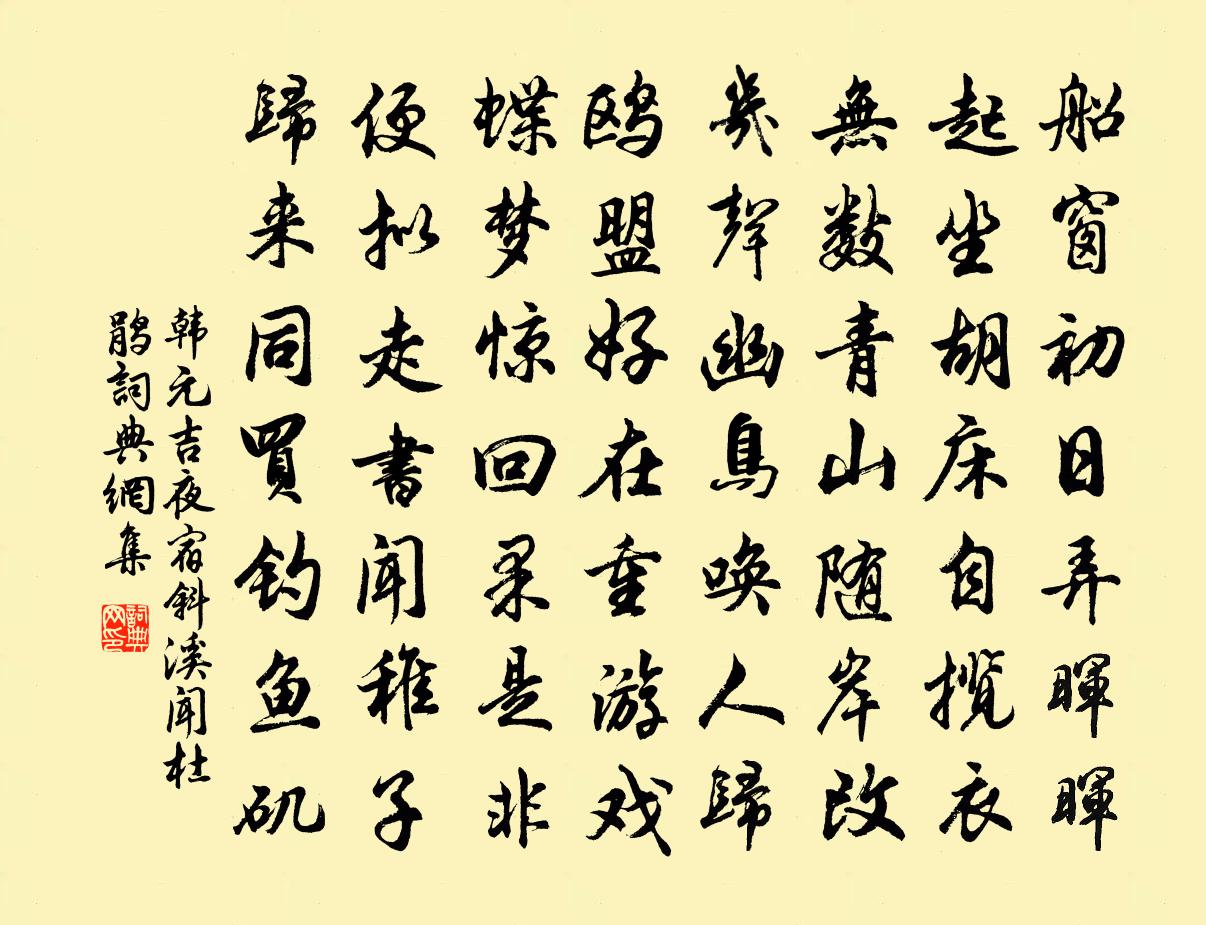 船窗初日弄暉暉
起坐胡床自揽衣
無数青山随岸改
幾聲幽鳥唤人歸
鸥盟好在重游戏
蝶梦惊回果是非
便拟走書闻稚子
歸来同買钓鱼矶
韩元吉夜宿斜溪闻杜
鹃詞典網集
詞典
网印